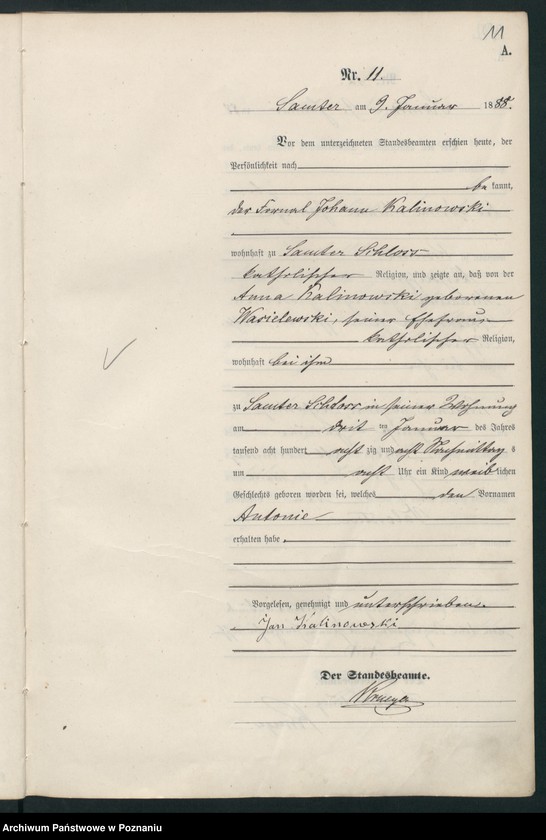 11
A.
Nr. 11.
Samter am 9. Januar 1888.
Vor dem unterzeichneten Standesbeamten erschien heute, der
Persönlichkeit nach
be kannt,
der Fornal Johann Kalinowski
wohnhaft zu Samter Schloss
katholischer Religion, und zeigte an, daß von der
Anna Kalinowski geborenen
Wasielewski, seiner Ehefrau
katholischer Religion,
wohnhaft bei ihm
zu Samter Schloss in seiner Wohnung
am drit ten Januar des Jahres
tausend acht hundert acht zig und acht Nachmittag s
um acht Uhr ein Kind weib lichen
Geschlechts geboren worden sei, welches den Vornamen
Antonie
erhalten habe.
Vorgelesen, genehmigt und unterschrieben.
Jan Kalinowski
Der Standesbeamte.
Archiwum Państwowe w Poznaniu